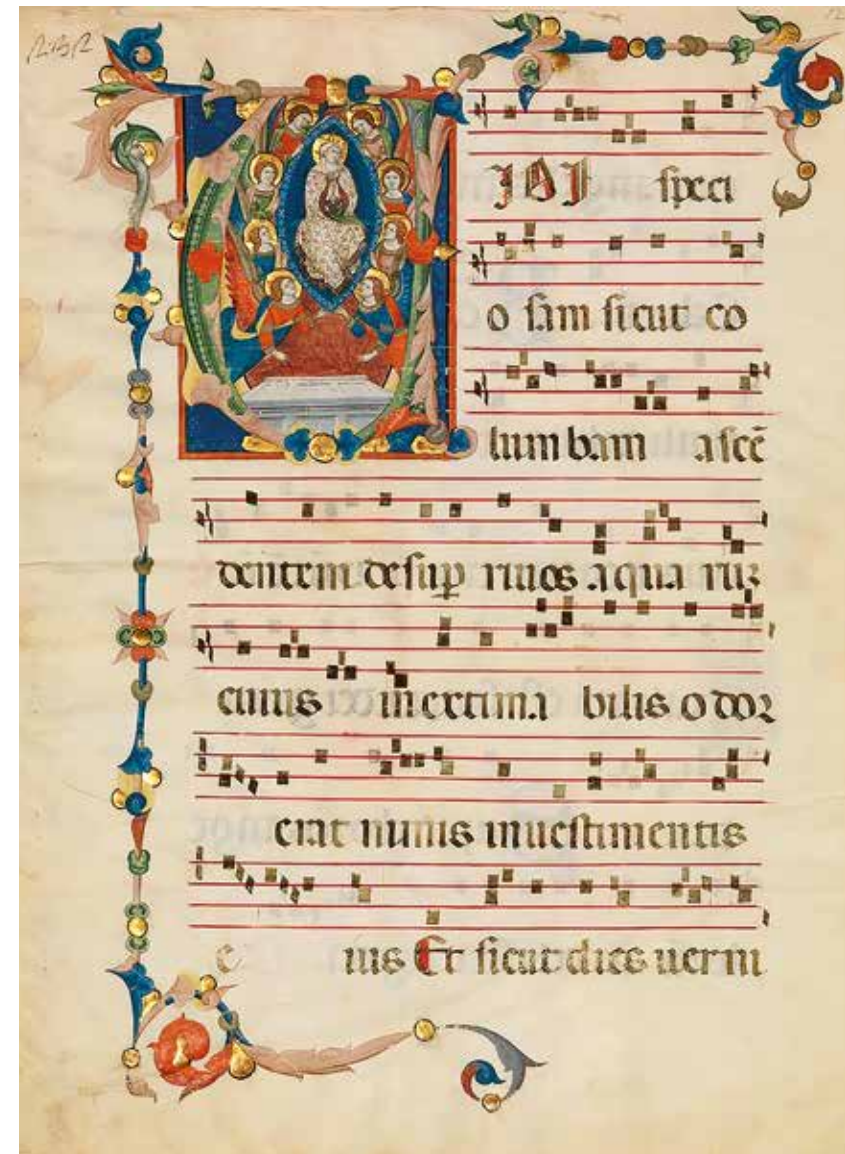 IDI speci
o sam sicut co
lum bam ascē
dentem desuꝑ riuos aqua ruꝫ
cuius inextima bilis odor
erat nimis inuestimentis
e ius Et sicut dies uerni